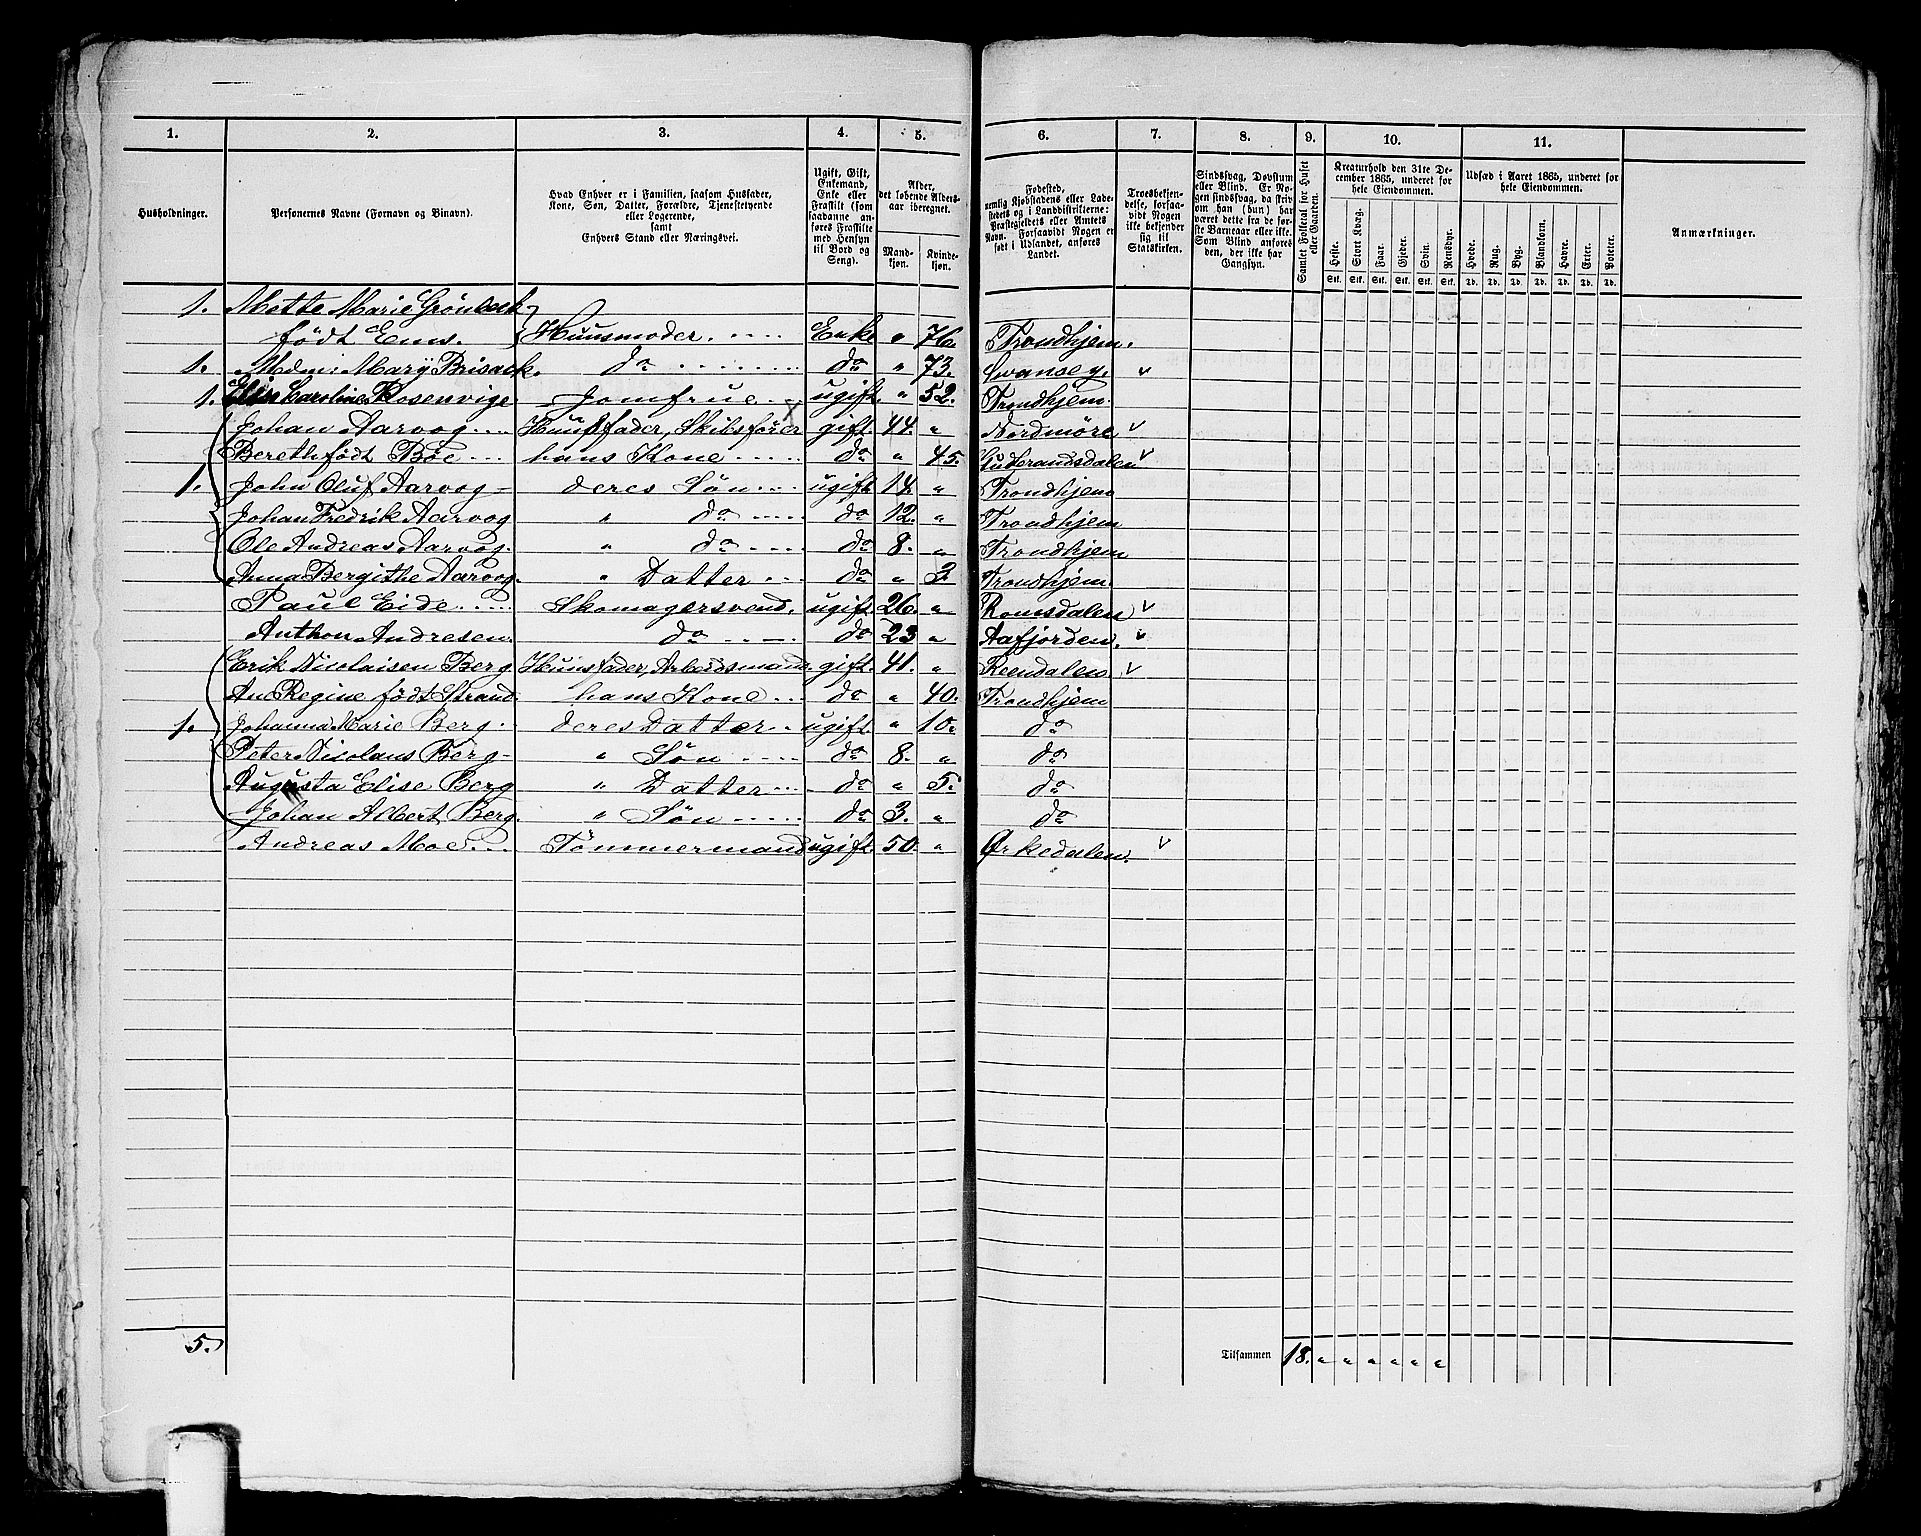 1. 2. 3. 4. 5. 6. 7. 8. 9. 10. 11.
Husholdninger.
Personernes Navne (Fornavn og Binavn).
Hvad Enhver er i Familien, saasom Husfader, Kone, Søn, Datter, Forældre, Tjenestetyende eller Logerende, samt Enhvers Stand eller Næringsvei.
Ugift, Gift, Enkemand, Enke eller Fraskilt (som saadanne anføres Fraskilte med Hensyn til Bord og Seng).
Alder, det løbende Alders-aar iberegnet.
Mand-kjøn. Kvinde-kjøn.
Fødested, nemlig Kjøbstadens eller Ladestedets og i Landdistrikterne: Præstegjeldets eller Amtets Navn. Forsaavidt Nogen er født i Udlandet, anføres Landet.
Troesbekjendelse, forsaavidt Nogen ikke bekjender sig til Statskirken.
Sindssvag, Døvstum eller Blind. Er Nogen sindssvag, da skrives om han (hun) har været dette fra de første Barneaar eller ikke. Som Blind anføres den, der ikke har Gangsyn.
Samlet Folketal for Huset eller Gaarden.
Kreaturhold den 31te December 1865, underet for hele Eiendommen.
Heste. Stort Kvæg. Faar. Gjeder. Svin. Rensdyr.
Stk. Stk. Stk. Stk. Stk. Stk.
Udsæd i Aaret 1865, underet for hele Eiendommen.
Hvede. Rug. Byg. Blandkorn. Havre. Erter. Poteter.
Td. Td. Td. Td. Td. Td. Td.
Anmærkninger.
1. Mette Marie Grönbeck
født Ems. Huusmoder. Enke " 76. Trondhjem.
1. Mdm: Mary Brisack. do do " 73. Swansey. v
1. Elen Caroline Rosenvige Jomfrue ugift. " 52. Trondhjem.
Johan Aarvog Huusfader, Skibsfører gift. 44. " Nordmöre v
Bereth født Böe hans Kone do " 45. Gudbrandsdalen v
1. John Oluf Aarvog deres Søn ugift 14 " Trondhjem
Johan Fredrik Aarvog " do do 12. " Trondhjem
Ole Andreas Aarvog. " do do 8. " Trondhjem
Anna Bergithe Aarvog. " Datter do " 3 Trondhjem.
Paul Eide Skomagersvend, ugift. 26. " Romsdalen v
Anthon Andresen. do do 23 " Aafjorden. v
Erik Nicolaisen Berg Huusfader, Arbeidsmand. gift. 41. " Reendalen v
An Regine født Strand hans Kone do " 40. Trondhjem
1. Johanna Marie Berg deres Datter ugift. " 10. do
Peter Nicolaus Berg " Søn do 8. " do
Augusta Elise Berg " Datter do " 5. do
Johan Albert Berg. " Søn do 3. " do
Andreas Moe. Tømmermand ugift 50. " Ørkedalen. v
5. Tilsammen 18. " " " " " "